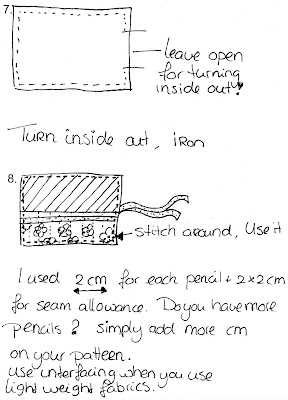 7.
leave open
for turning
inside out!
Turn inside out, iron
8.
stitch around, Use it
I used 2 cm for each pencil + 2x2cm
for seam allowance. Do you have more
pencils? simply add more cm
on your pattern.
use interfacing when you use
light weight fabrics.